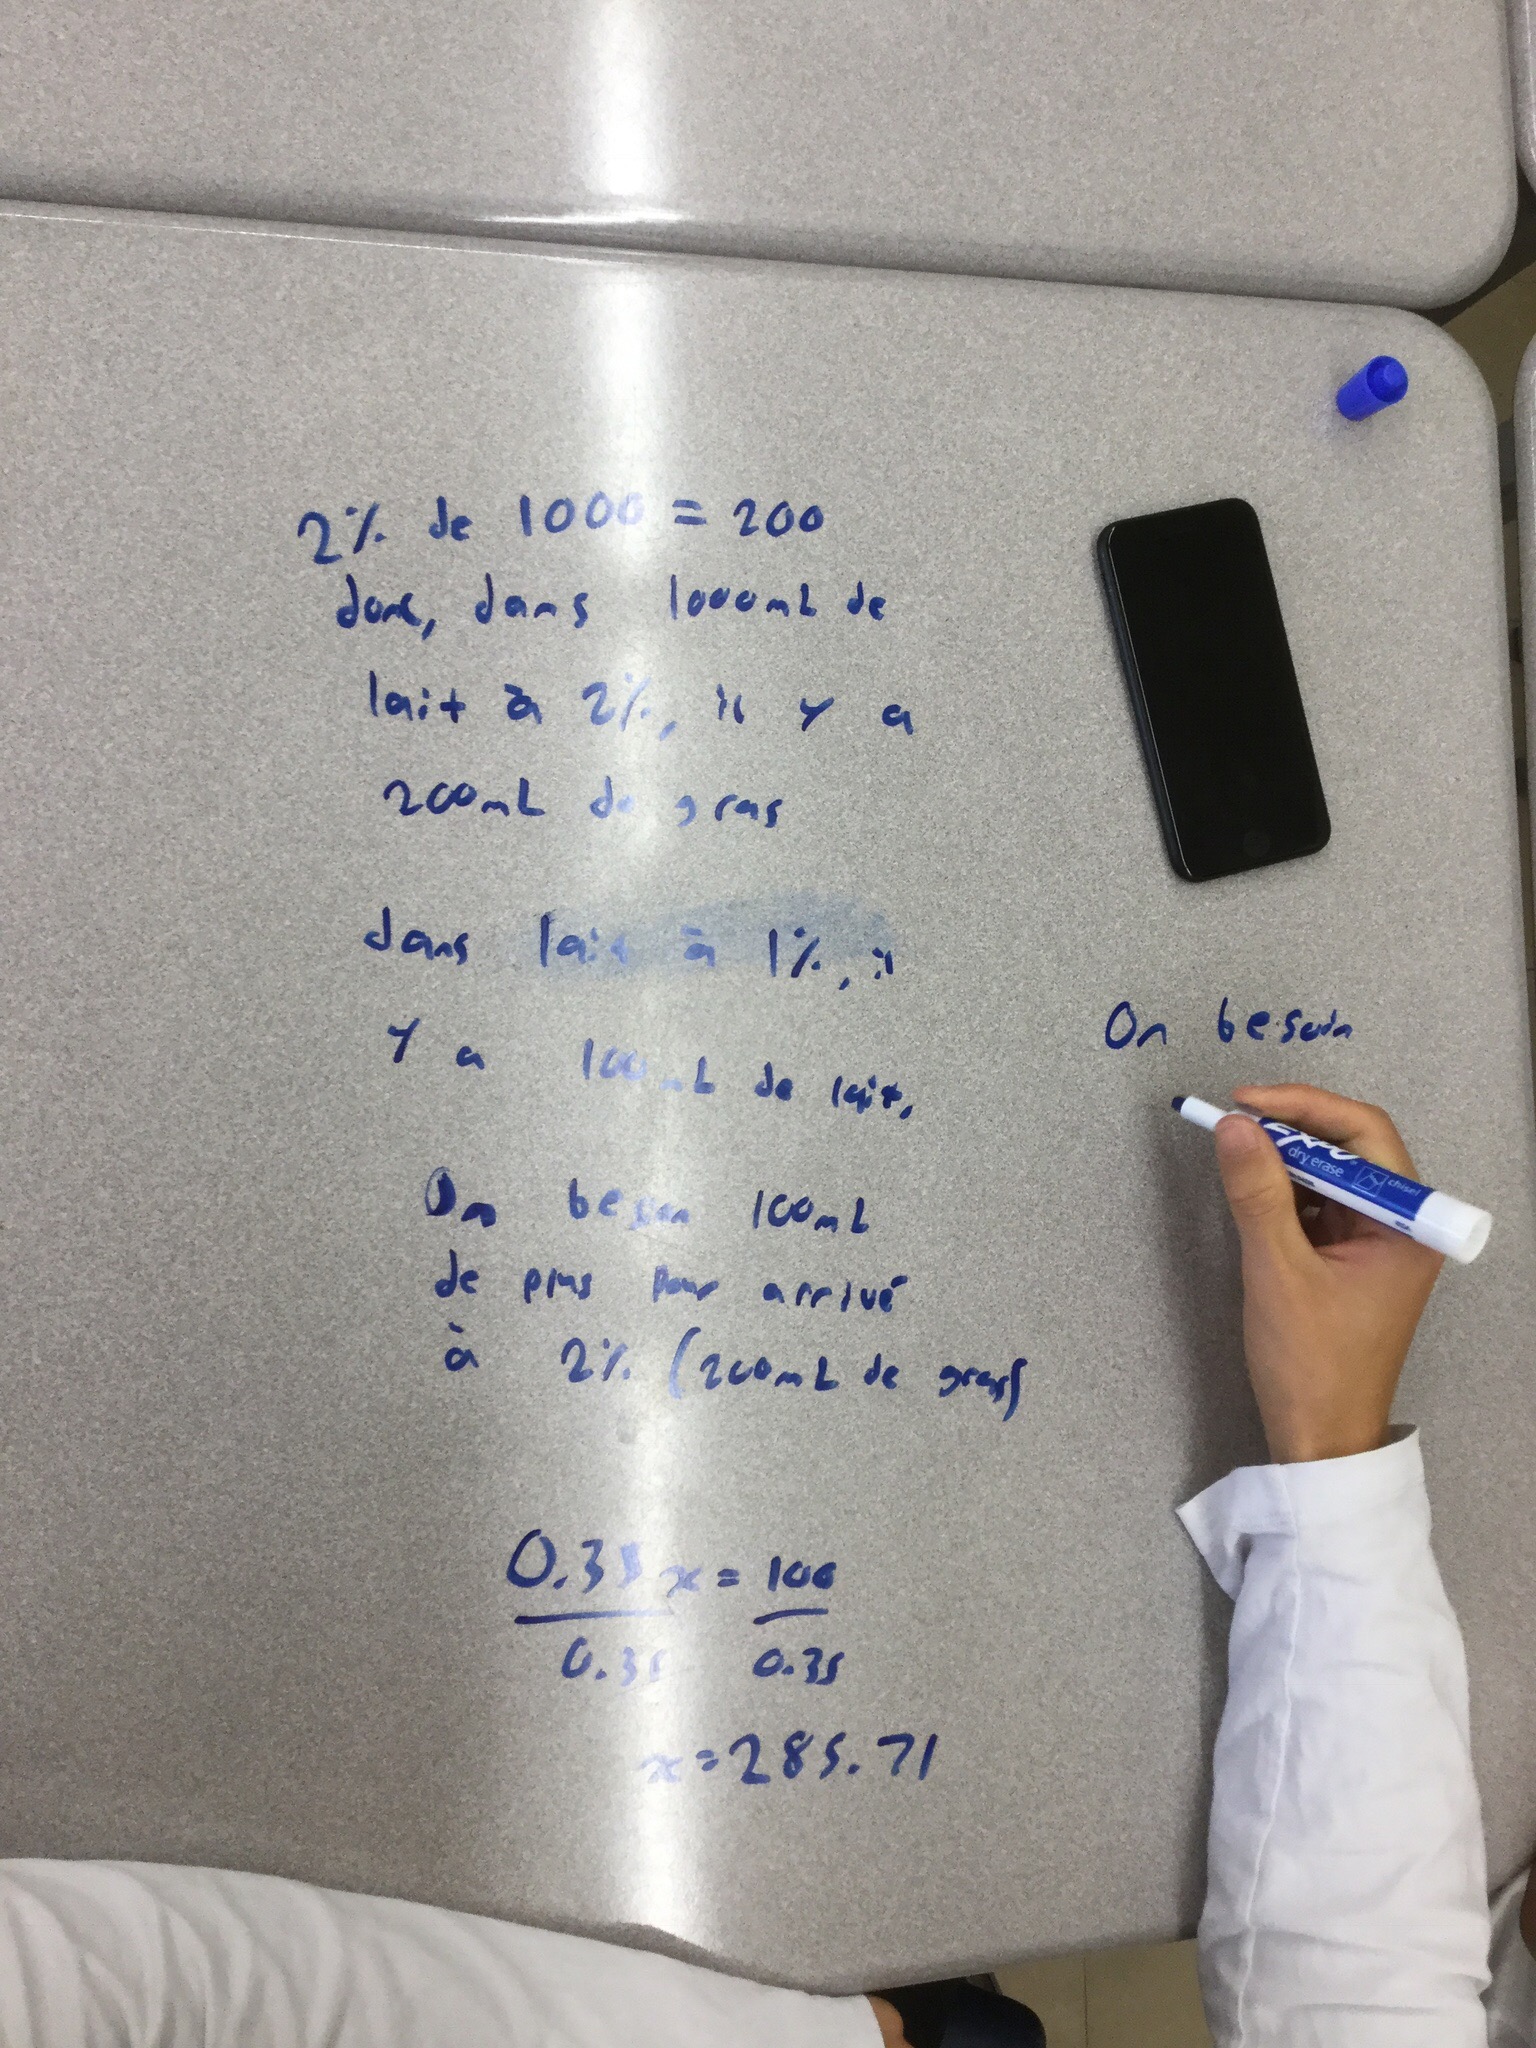 2% de 1000 = 200
donc, dans 1000mL de
lait à 2%, il y a
200mL de gras
dans lait à 1%, il
y a 100mL de lait.
On besoin 100mL
de plus pour arrivé
à 2% (200mL de gras)
0.35x = 100
0.35 0.35
x = 285.71
On besoin
EXPO
dry erase
chisel